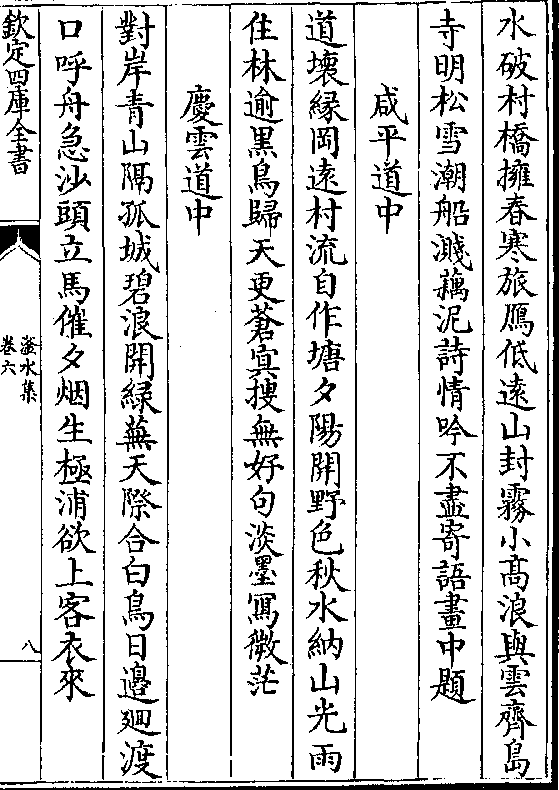 水破村橋擁春寒旅鴈低遠山封霧小髙浪與雲齊島
寺明松雪潮船濺藕泥詩情吟不盡寄語畫中題
咸平道中
道壞縁岡逺村流自作塘夕陽開野色秋水納山光雨
住林逾黒鳥歸天更蒼㝠搜無好句淡墨寫微茫
慶雲道中
對岸青山隔孤城碧浪開緑蕪天際合白鳥日邉廻渡
口呼舟急沙頭立馬催夕烟生極浦欲上客衣來
欽定四庫全書
滏水集
卷六
八